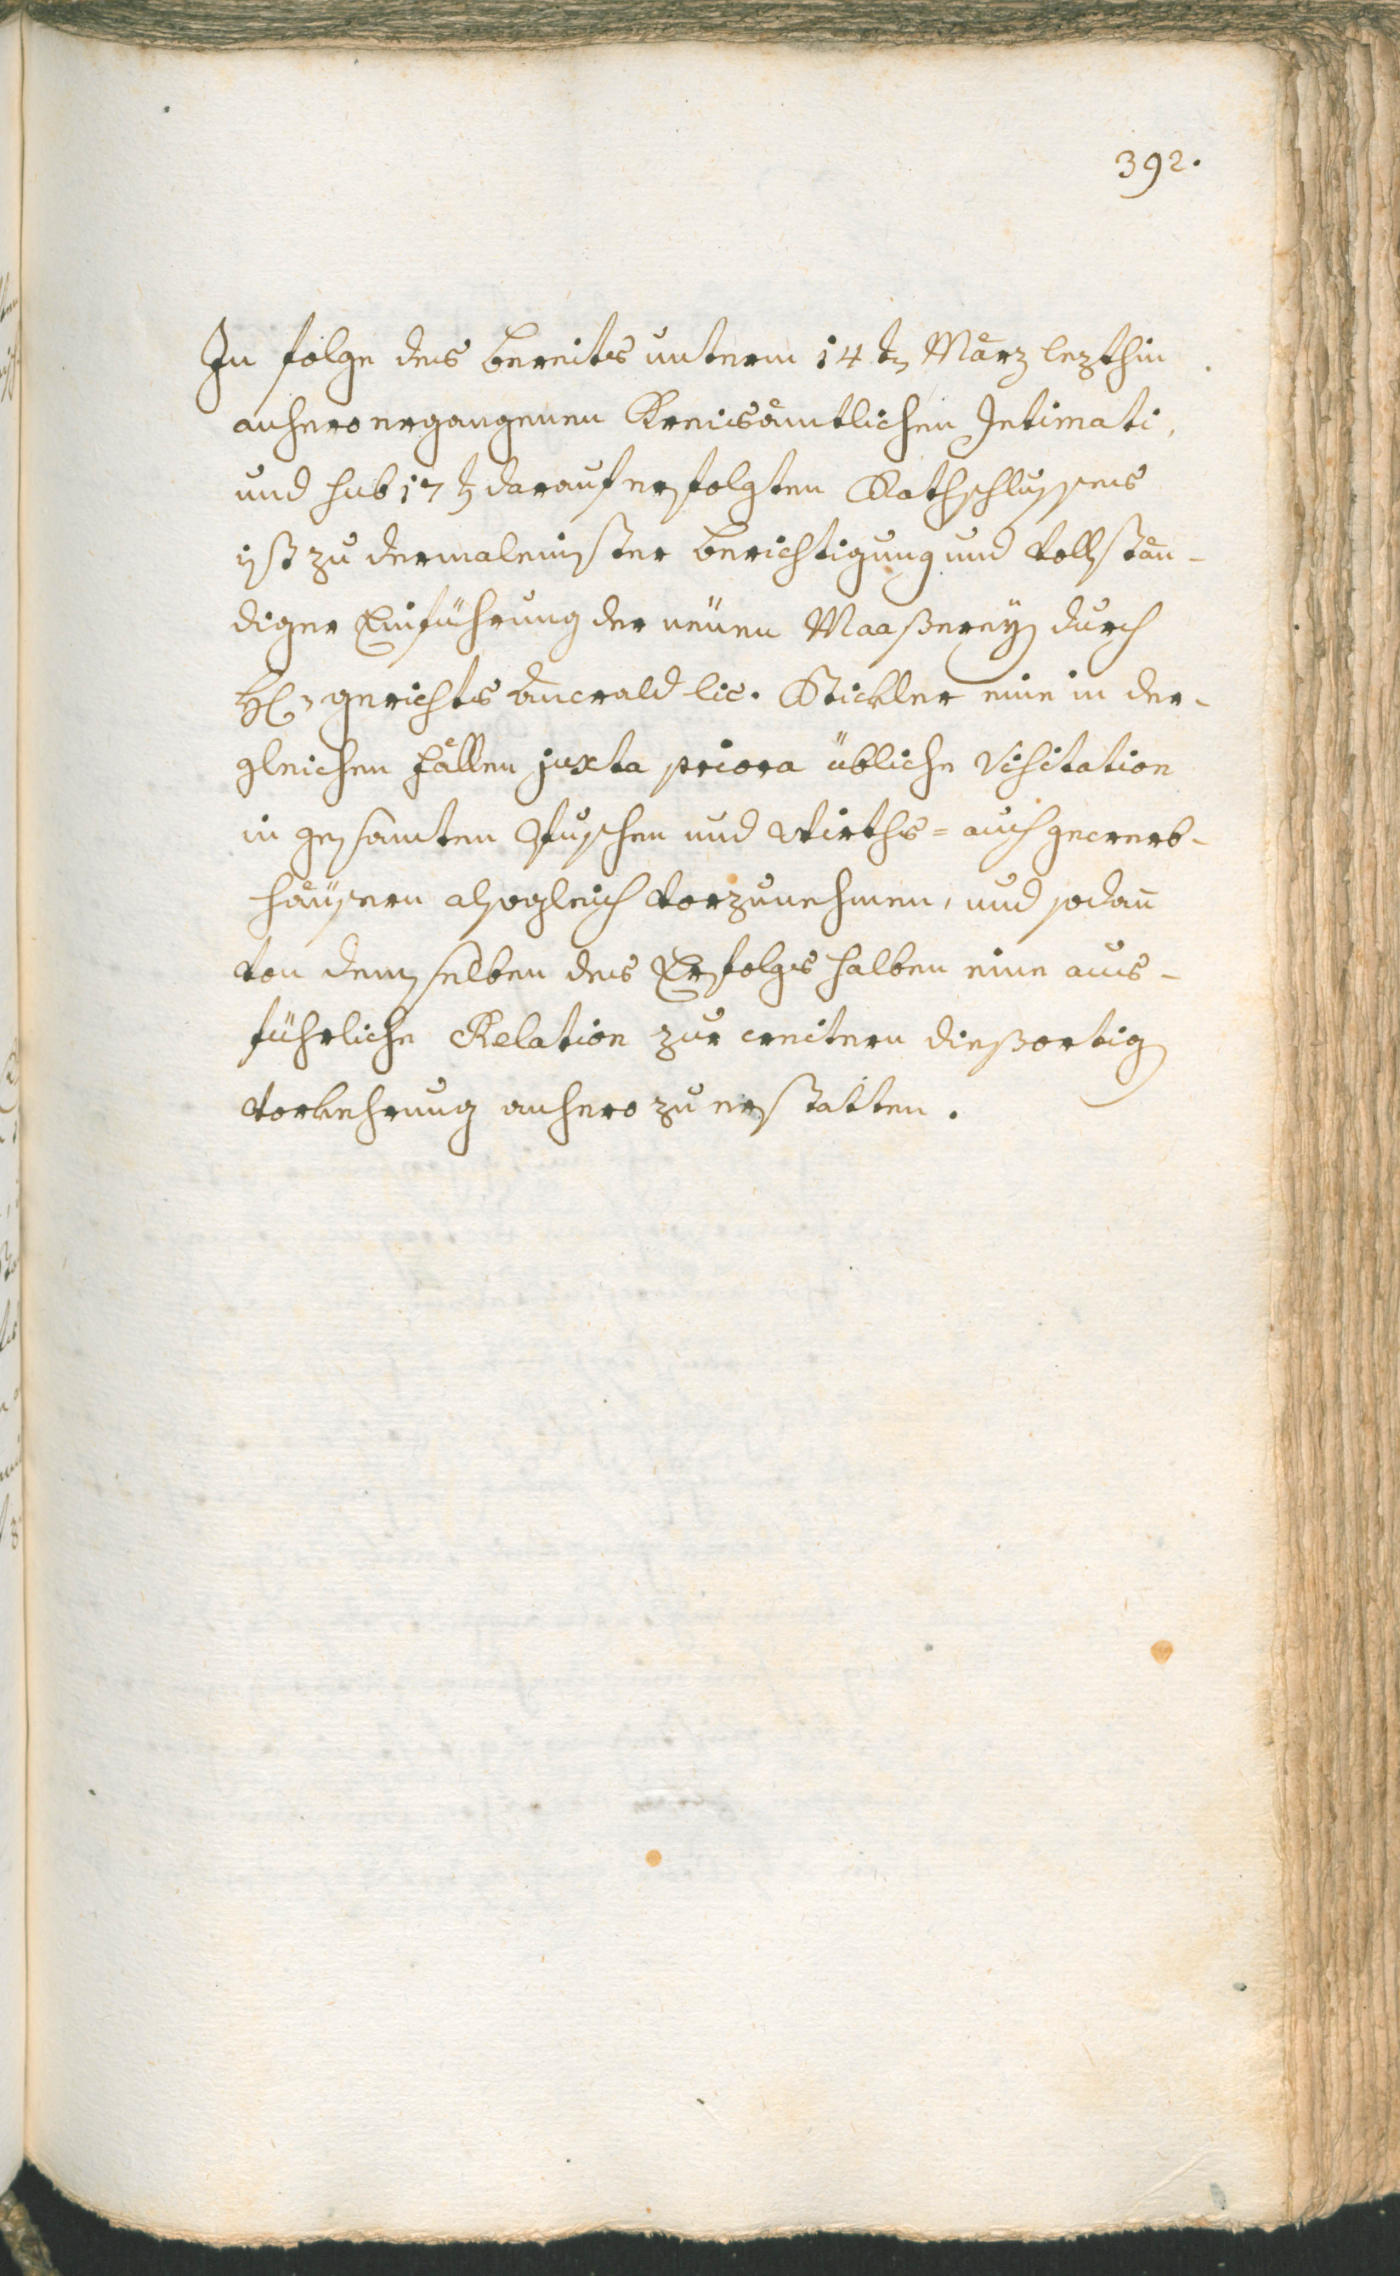 392.
In folge des bereits unterm 14 tn März lezthin
anhero ergangenen Kreisämtlichen Intimati,
und sub 17 t darauf erfolgten Rathschlusses
ist zu dermaleinster berichtigung und vollstän-
diger Einführung der neüen Maaßerey durch
gerichts anwald lic. Stickler eine in der-
gleichen fällen juxta priora übliche Visitation
in gesamten und wirths= auch gewerb-
häüsern alsogleich vorzunehmen, und sodan̄
von demselben des Erfolgs halben eine aus-
führliche Relation zur weitern dießortig
vorkehrung anhero zu erstatten.